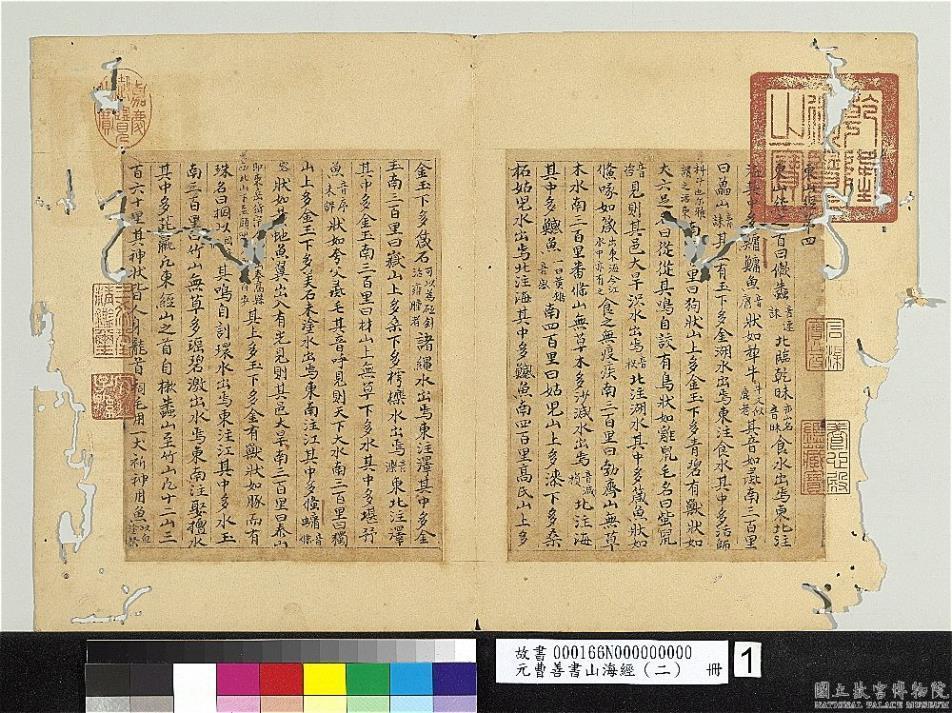 東山經第四
東山經首曰樕螽音速咮北臨乾昧亦山名音昧食水出焉東北注
海其中多鱅鱅魚音庸狀如犂牛牛文似虎者其音如彘南三百里
曰藟山音誄其上有玉下多金湖水出焉東注食水其中多活師
科斗也尔雅謂之活東南百里曰狗狀山上多金玉下多青碧有獸狀如
犬六足名曰從從其鳴自詨有鳥狀如雞鼠毛名曰蚩鼠
音咨見則其邑大旱沢水出焉音枳北注湖水其中多箴魚狀如
儵喙如箴出東海今江水中亦有之食之無疫疾南三百里曰勃齊山無草
木水南三百里番條山無草木多沙減水出焉音減損北注海
其中多鱤魚一曰黃頰音感南四百里曰姑皃山上多漆下多桑
柘姑皃水出焉北注海其中多鱤魚南四百里高氏山上多
金玉下多箴石可以為砭針治癰腫者諸繩水出焉東注澤其中多金
玉南三百里曰嶽山上多桑下多樗櫟水出焉音濼東北注澤
其中多金玉南三百里曰犲山上無草下多水其中多堪㐨
魚音序未詳狀如夸父彘毛其音呼見則天下大水南三百里曰獨
山上多金玉下多美石末塗水出焉東南注江其中多鯈䗤音條
容狀如黃虵魚翼出入有光見則其邑大旱南三百里曰泰山
即東岳岱宗其上多玉下多金有獸狀如豚而有
珠名曰狪狪其鳴自訆環水出焉東注江其中多水玉
南三百里曰竹山無草多瑤碧激出水焉東南注娶檀水
其中多茈蠃凡東經山之首自樕螽山至竹山凡十二山三
百六十里其神狀皆人身龍首祠毛用一犬祈神用魚以血塗祭
嘉慶御覽之寶
乾隆御覽之寶
養心殿鑑藏寶
石渠寶笈
故書 000166N000000000
元曹善書山海經（二） 冊
1
國立故宮博物院
NATIONAL PALACE MUSEUM